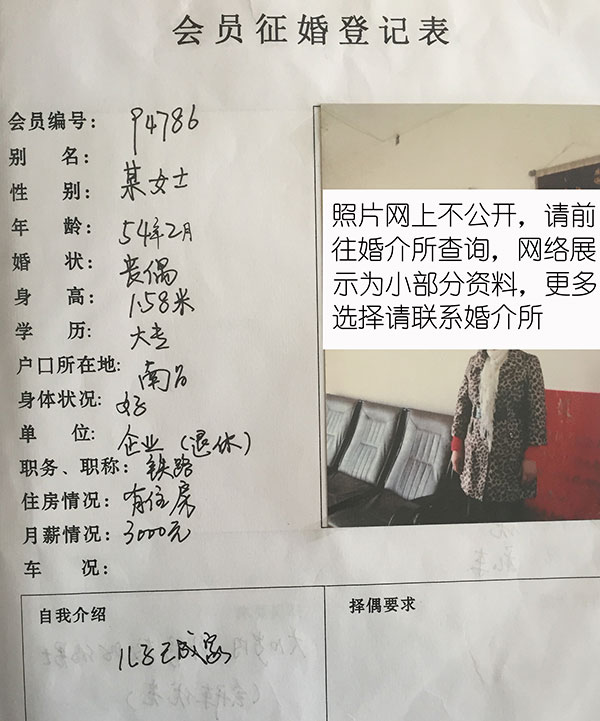 会员征婚登记表
会员编号： P4786
别 名： 某女士
性 别：
年 龄： 54年2月
婚 状： 丧偶
身 高： 1.58米
学 历： 大专
户口所在地: 南昌
身体状况: 好
单 位: 企业（退休）
职务、职称： 铁路
住房情况： 有住房
月薪情况： 3000元
车 况：
照片网上不公开，请前
往婚介所查询，网络展
示为小部分资料，更多
选择请联系婚介所
自我介绍
儿子已成家
择偶要求